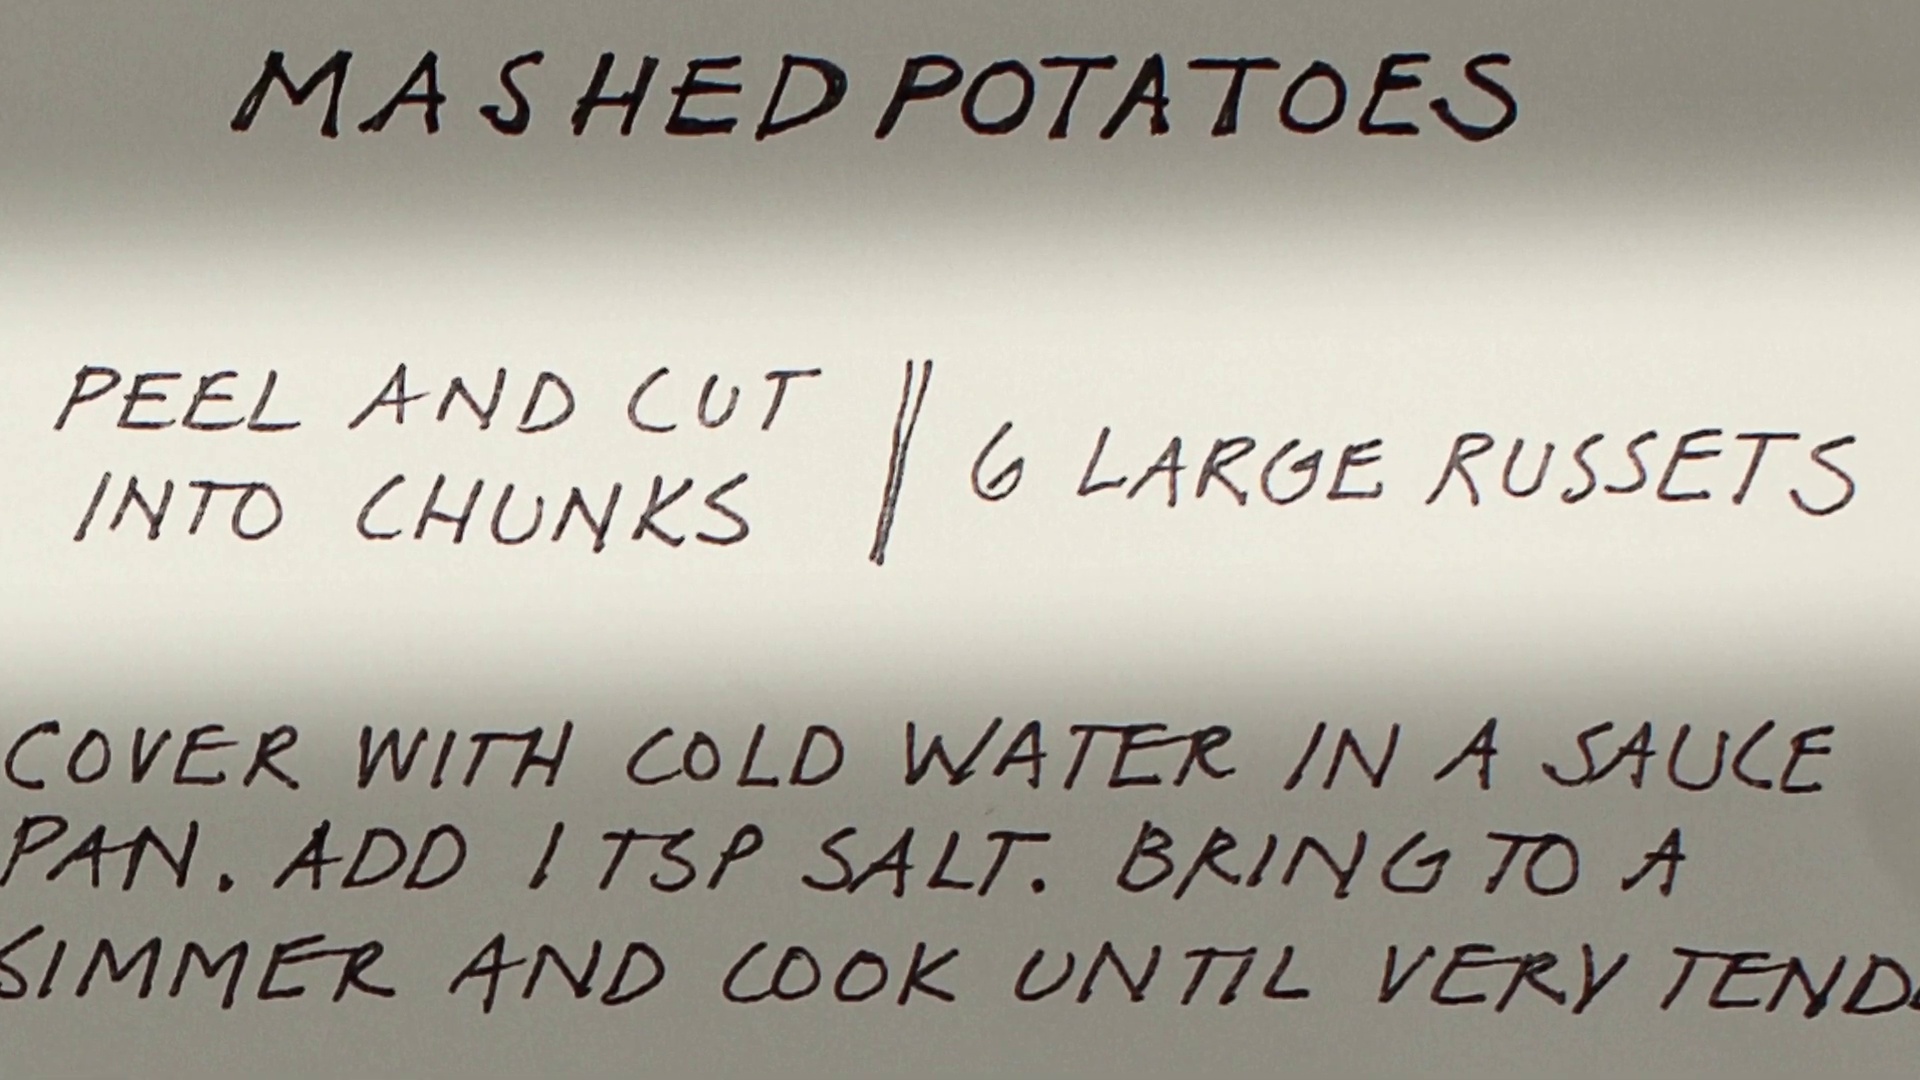 MASHED POTATOES
PEEL AND CUT
INTO CHUNKS
6 LARGE RUSSETS
COVER WITH COLD WATER IN A SAUCE
PAN. ADD 1 TSP SALT. BRING TO A
SIMMER AND COOK UNTIL VERY